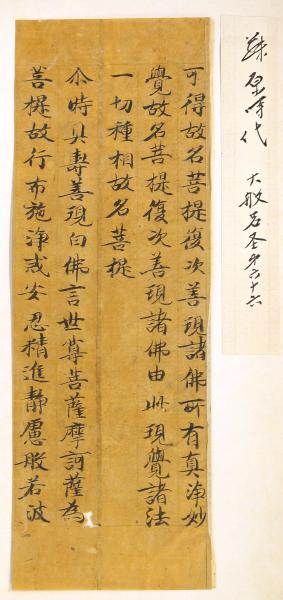 鎌倉時代
大般若経巻六十六
可得故名菩提復次善現諸佛所有真淨妙
覺故名菩提復次善現諸佛由此現覺諸法
一切種相故名菩提
尒時具壽善現白佛言世尊菩薩摩訶薩為
菩提故行布施淨戒安忍精進靜慮般若波